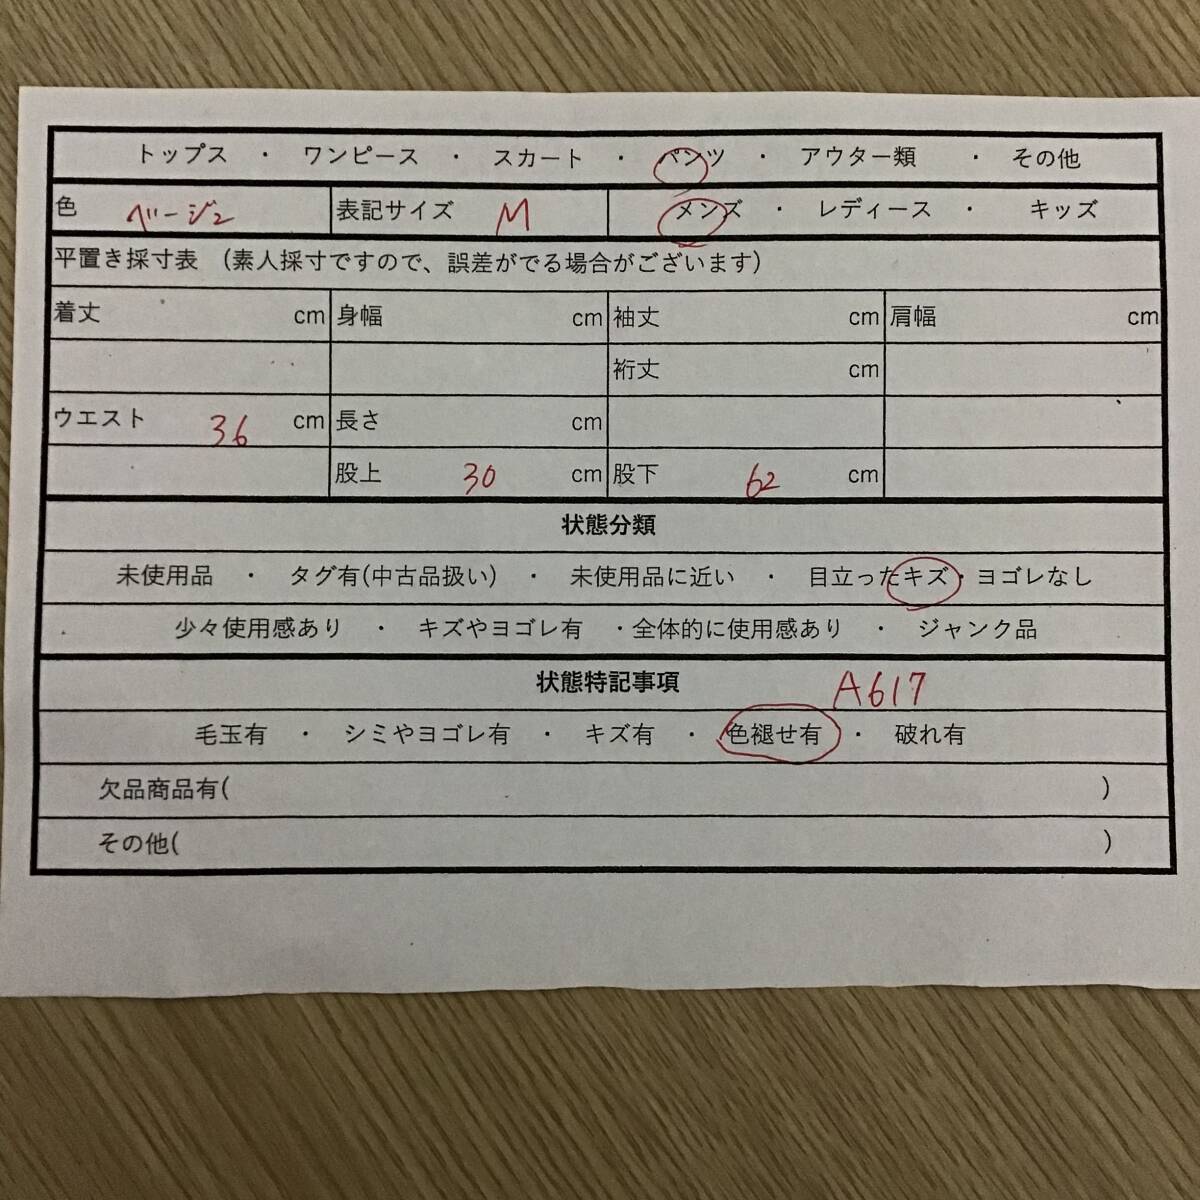 トップス ・ ワンピース ・ スカート ・ パンツ ・ アウター類 ・ その他
色 ベージュ 表記サイズ M メンズ ・ レディース ・ キッズ
平置き採寸表 (素人採寸ですので、誤差がでる場合がございます)
着丈 cm 身幅 cm 袖丈 cm 肩幅 cm
裄丈 cm
ウエスト 36 cm 長さ cm
股上 30 cm 股下 62 cm
状態分類
未使用品 ・ タグ有(中古品扱い) ・ 未使用品に近い ・ 目立ったキズ・ヨゴレなし
少々使用感あり ・ キズやヨゴレ有 ・全体的に使用感あり ・ ジャンク品
状態特記事項 A617
毛玉有 ・ シミやヨゴレ有 ・ キズ有 ・ 色褪せ有 ・ 破れ有
欠品商品有( )
その他( )